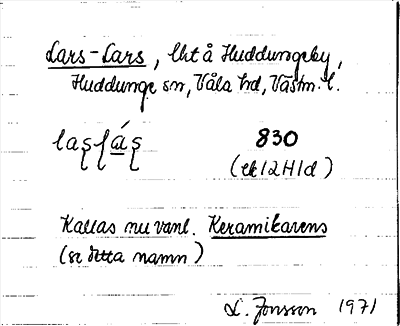 Lars-Lars, lht å Huddungeby,
Huddunge sn, Våla hd, Västm. l.
830
(ek 12H1d)
Kallas nu vanl. Keramikarens
(se detta namn)
L. Jonsson 1971